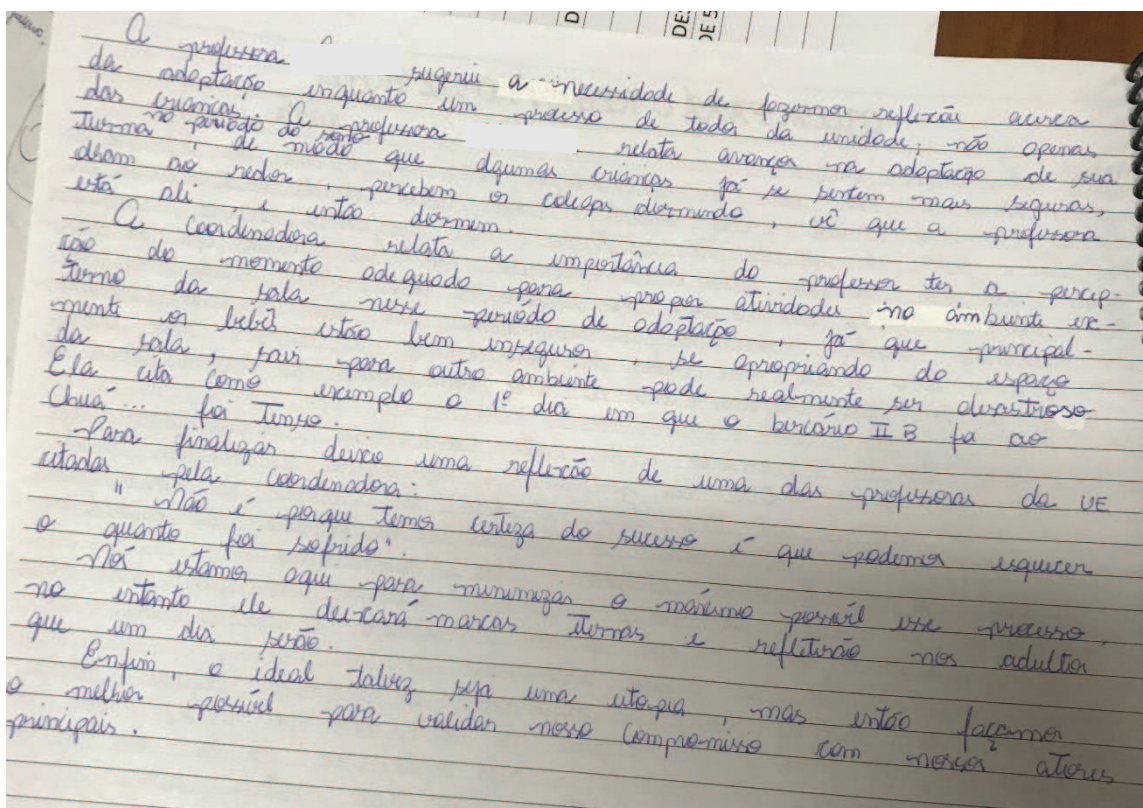 D
DES
DE 5
A professora sugeriu a necessidade de fazermos reflexão acerca
da adaptação enquanto um processo de toda da unidade, não apenas
das crianças. A professora relata avanços na adaptação de sua
turma no período do sono, de modo que algumas crianças já se sentem mais seguras,
olham ao redor, percebem os colegas dormindo, vê que a professora
está ali e então dormem.
A coordenadora relata a importância do professor ter a percep-
ção do momento adequado para propor atividades no ambiente ex-
terno da sala nesse período de adaptação, já que principal-
mente os bebês estão bem inseguros, se apropriando do espaço
da sala, sair para outro ambiente pode realmente ser desastroso
Ela cita como exemplo o 1º dia em que o berçário II B foi ao
Chuá... foi Tenso.
Para finalizar deixo uma reflexão de uma das professoras da UE
citadas pela coordenadora:
" Não é porque temos certeza do sucesso é que podemos esquecer
o quanto foi sofrido".
Nós estamos aqui para minimizar o máximo possível esse processo,
no entanto ele deixará marcas ternas e refletirão nos adultos
que um dia serão.
Enfim, o ideal talvez seja uma utopia, mas então façamos
o melhor possível para validar nosso compromisso com nossos atores
principais.